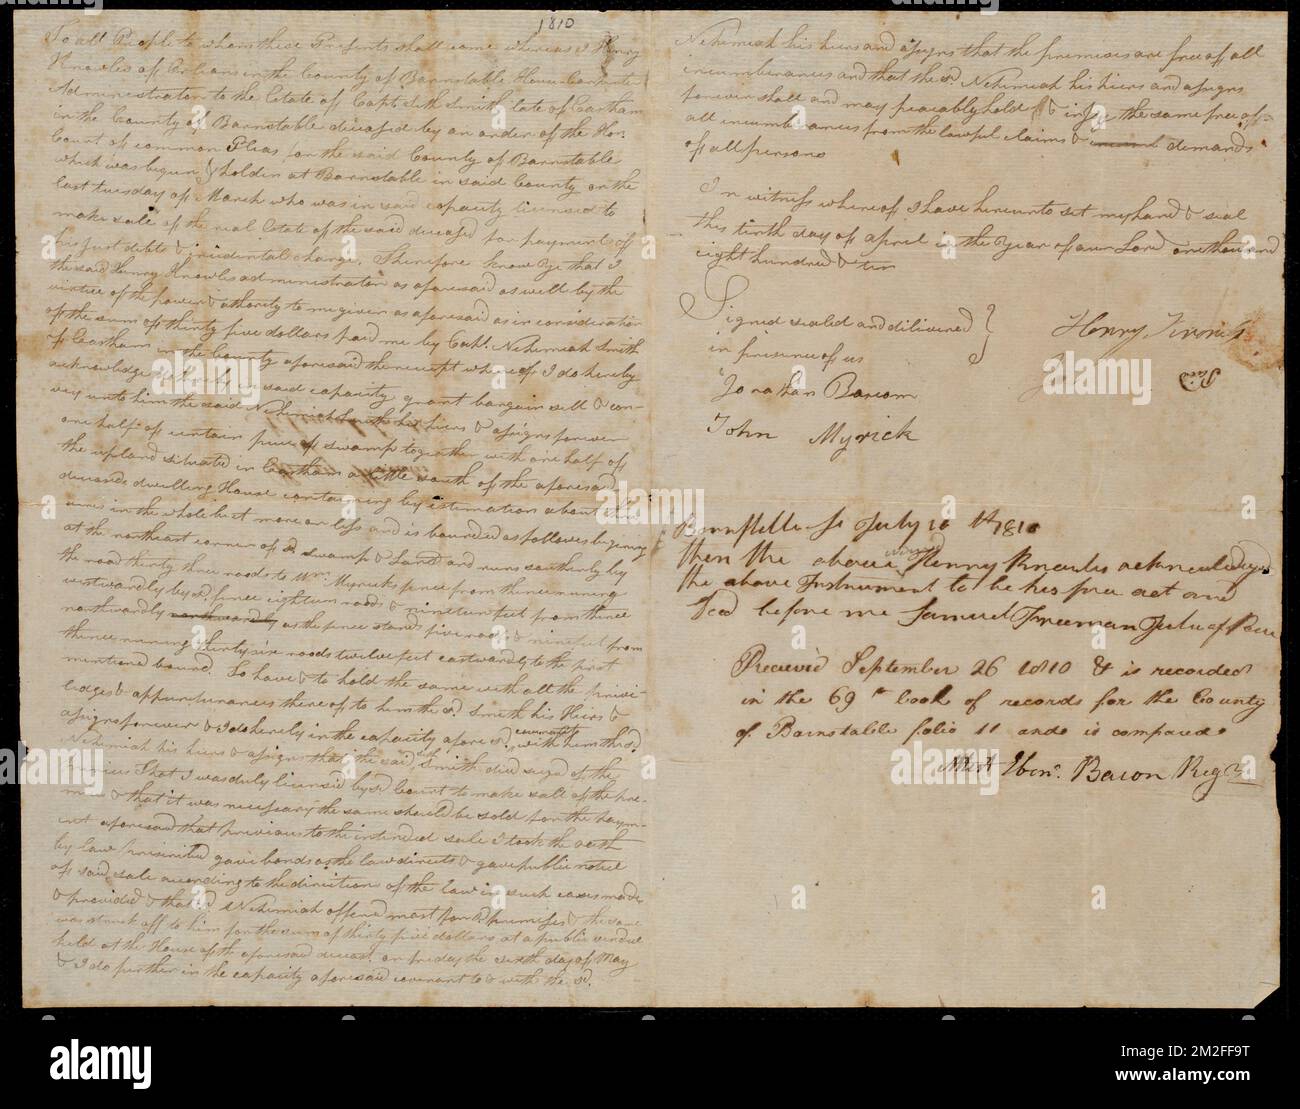 1810
To all People to whom these Presents shall come whereas I Henry
Knowles of Orleans in the County of Barnstable House Carpenter
Administrator to the Estate of Capt. Seth Smith late of Eastham
in the County of Barnstable deceased by an order of the Hon.
Court of common Pleas for the said County of Barnstable
which was begun & holden at Barnstable in said County on the
last tuesday of March who was in said capacity licensed to
make sale of the real Estate of the said deceased for payment of
his just debts & incidental charges. Therefore know ye that I
the said Henry Knowles administrator as aforesaid as well by the
virtue of the power & athority to me given as aforesaid as in consideration
of the sum of thirty five dollars paid me by Capt. Nehemiah Smith
of Eastham in the County aforesaid the receipt where of I do hereby
acknowledge do hereby in said capacity grant bargain sell & con-
vey unto him the said Nehemiah Smith his heirs & assigns forever
one half of certain piece of swamp together with one half of
the upland situated in Eastham a little south of the aforesaid
deceaseds dwelling House containing by estimation about three
acres in the whole be it more or less and is bounded as follows begining
at the northeast corner of sd. swamp & Land and runs southerly by
the road thirty three roods to Wm. Myricks fence from thence runing
westwardly by sd. fence eighteen roods & nineteen feet from thence
northwardly as the fence stands five roods & nine feet from
thence running thirty six roods twelve feet eastwardly to the first
mentioned bound. To have & to hold the same with all the privi-
ledges & appurtenances there of to him the sd. Smith his Heirs &
assigns forever & I do hereby in the capacity aforesd. covenant with him the sd.
Nehemiah his heirs & assigns that the said Seth Smith died siezed of the
premises that I was duly licensed by sd. Court to make sale of the pre-
mises & that it was necessary the same should be sold for the paym-
ent aforesaid that previous to the intended sale I took the oath
by law prescribed gave bonds as the law directs & gave public notice
of said sale according to the direction of the law in such cases made
& provided & that sd. Nehemiah offered most for sd. premises & the same
was struck off to him for the sum of thirty five dollars at a public vendue
held at the House of the aforesaid deceasd. on friday the sixth day of May
& I do further in the capacity aforesaid covenant to & with the sd.
Nehemiah his heirs and assigns that the premises are free of all
incumberances and that the sd. Nehemiah his heirs and assigns
forever shall and may peacably hold & injoy the same free of
all incumberances from the lawful claims & demands
of all persons
In witness where of I have hereunto set my hand & seal
this tenth day of april in the year of our Lord one thousand
eight hundred & ten
Signed sealed and delivered
in presence of us
Henry Knowls
Seal
Jonathan Bascom
John Myrick
Barnstable ss July 10th 1810
then the above named Henry Knowles acknowledged
the above Instrument to be his free act and
Deed before me Samuel Freeman Justice of Peace
Received September 26 1810 & is recorded
in the 69th book of records for the County
of Barnstable folio 11 and is compared
Attest Eben. Bacon Regr
alamy
Image ID: 2M2FF9T
www.alamy.com